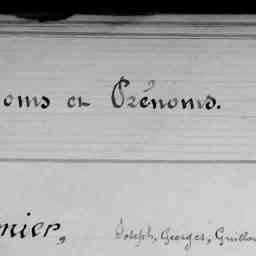 oms et Prénoms.
nier, Joseph, Georges, Guillau